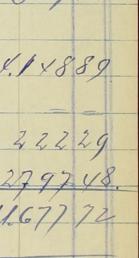 4.14889
22229
279748.
1.67772